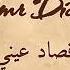 Amr Dia
قصاد عيني